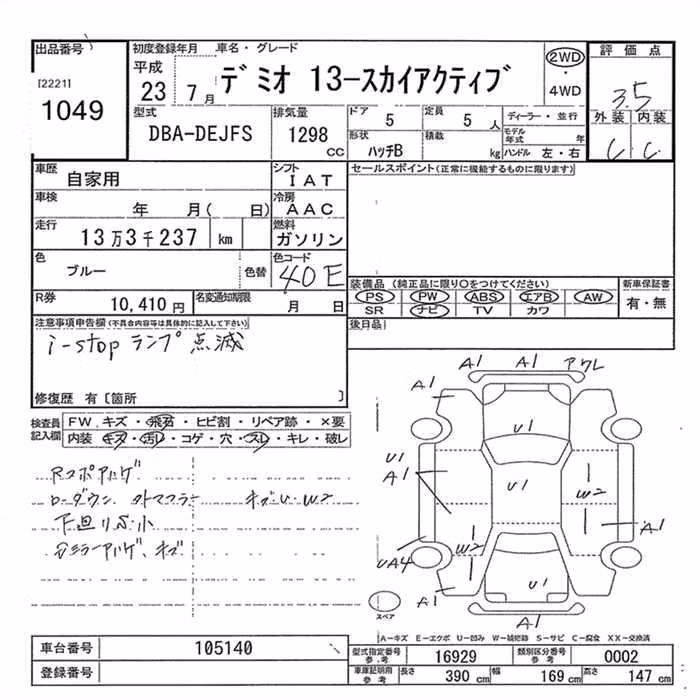 出品番号
[2221]
1049
初度登録年月
平成
23 7月
車名・グレード
デミオ 13-スカイアクティブ
2WD
・
4WD
評価点
3.5
外装 内装
C C
型式
DBA-DEJFS
排気量
1298
CC
ドア
5
定員
5 人
形状
ハッチB
積載
kg
ディーラー・並行
モデル年式 年
ハンドル 左・右
車歴
自家用
シフト
IAT
車検
年 月( 日)
冷房
AAC
走行
13万3千237 km
燃料
ガソリン
色
ブルー
色替
色コード
40E
R券
10,410円
名変通知期限
月 日
セールスポイント(正常に機能するものに限ります)
装備品 (純正品に限り○をつけてください)
PS PW ABS エアB AW
SR ナビ TV カワ
新車保証書
有・無
後日品
注意事項申告欄(不具合内容等は具体的に記入して下さい)
i-stop ランプ 点滅
修復歴 有〔箇所 〕
検査員
記入欄
FW キズ・飛石・ヒビ割・リペア跡・×要
内装 キズ・汚レ・コゲ・穴・スレ・キレ・破レ
Rスポハゲ
ローダウン 外マフラー キズU W2
下廻りS小
ミラーハゲ、キズ
A1 A1 アワレ
A1
U1
U1
A1
U1
W2
W2
A1
UA4
U1
A1
A1
スペア
A-キズ E-エクボ U-凹み W-補修跡 S-サビ C-腐食 XX-交換済
車台番号
105140
登録番号
型式指定番号
参考
16929
類別区分番号
参考
0002
車庫証明用
参考
長さ 390 cm 幅 169 cm 高さ 147 cm